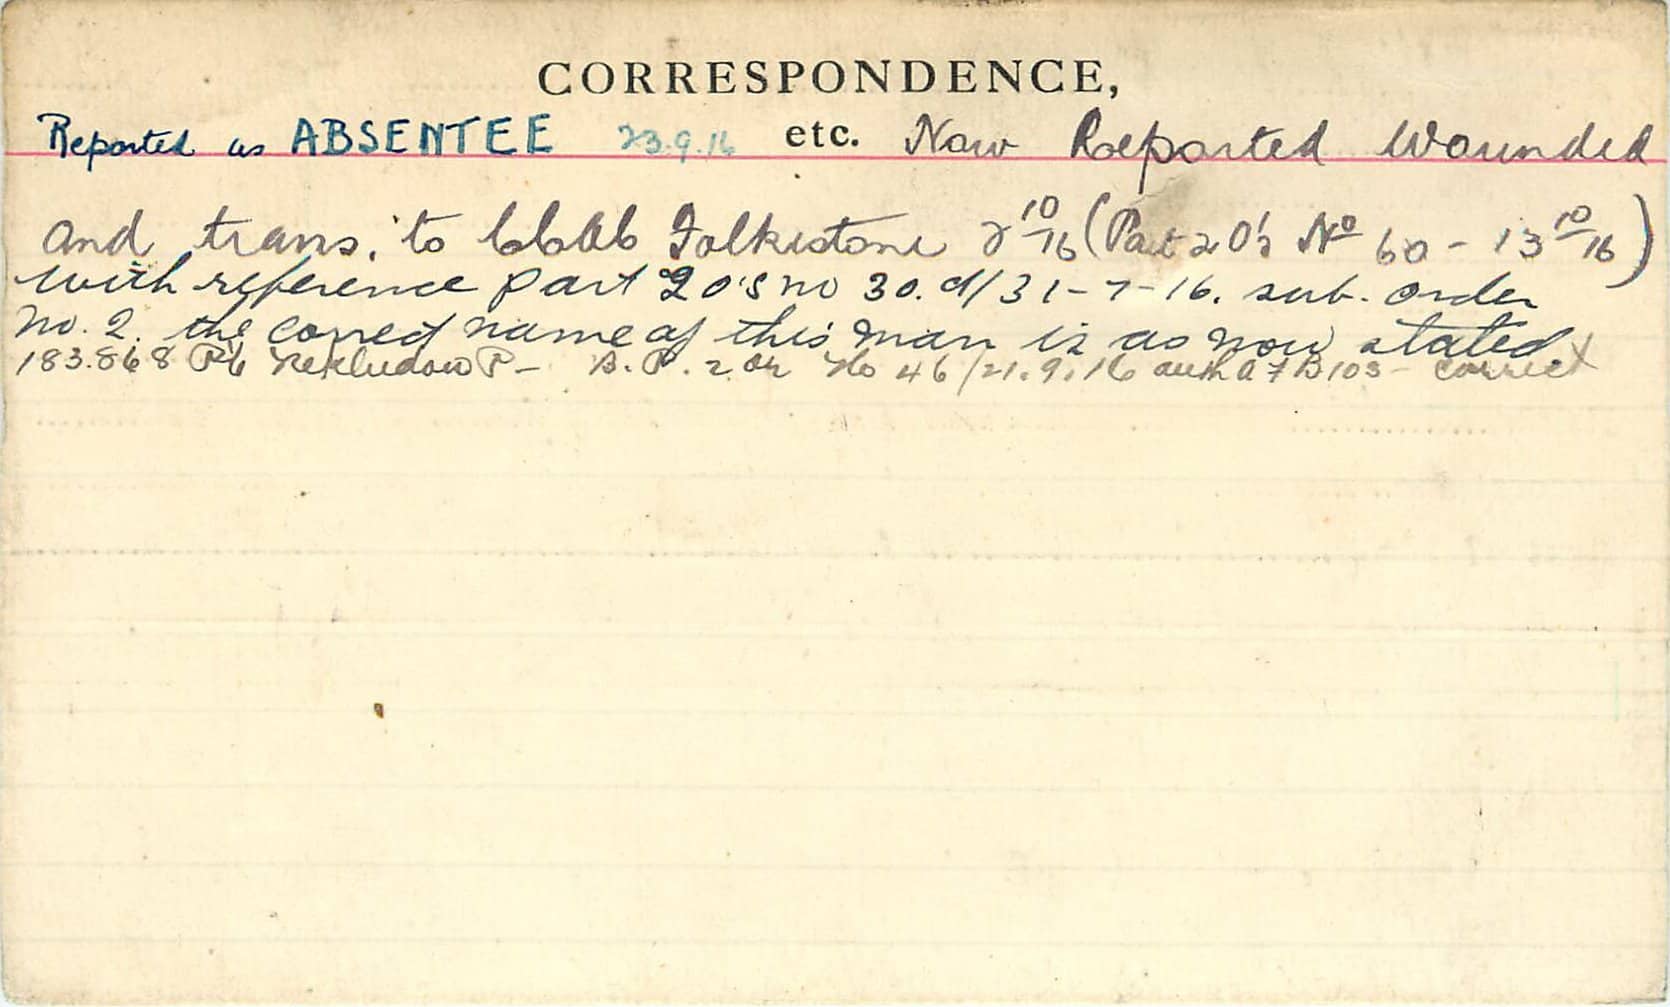 CORRESPONDENCE,
Reported as ABSENTEE 23.9.16 etc. Now Reported Wounded
and trans. to CCAC Folkestone 10/16 (Part 2 O's No 60 - 13 10/16)
with reference part 2 O's no 30. d/31-7-16. sub. order
no. 2. the correct name of this man is as now stated.
183.868 Pte Nekludow P - B. P. 2 Or No 46/21.9.16 auth A7B103 - correct